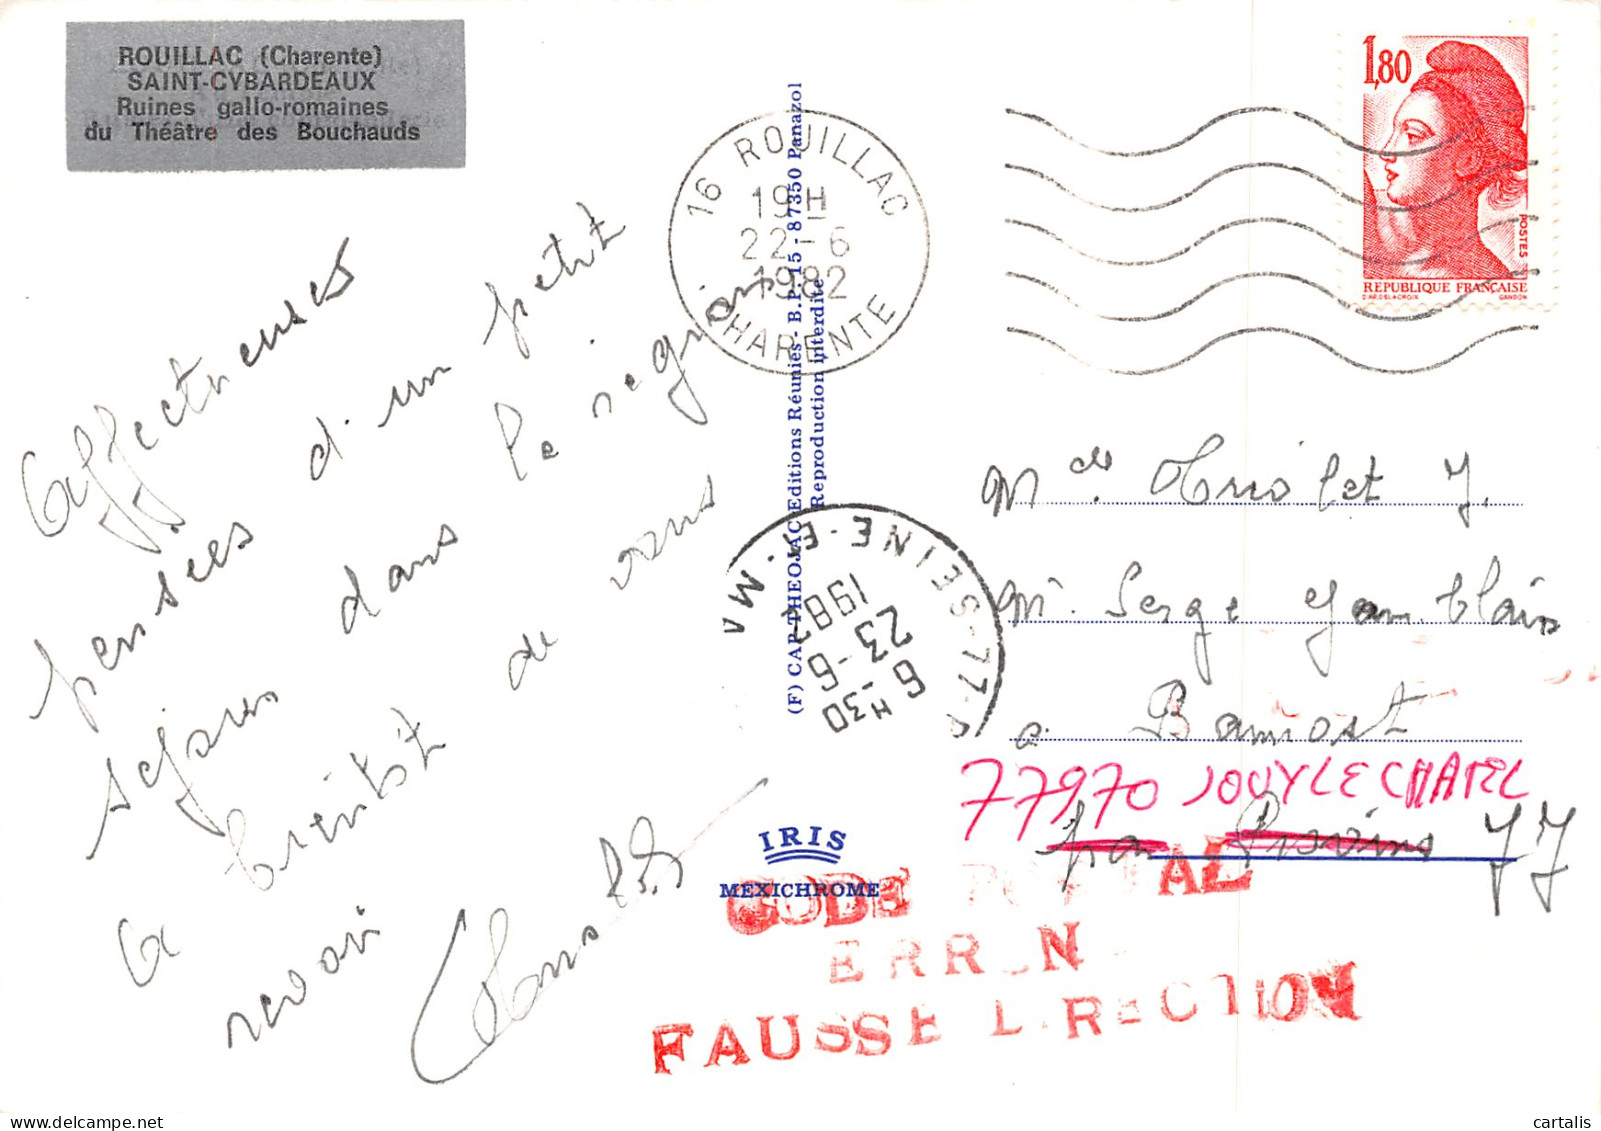 ROUILLAC (Charente)
SAINT-CYBARDEAUX
Ruines gallo-romaines
du Théâtre des Bouchauds
Affectueuses
pensées d'un petit
séjour dans la région
a bientôt de vous
revoir
16 ROUILLAC
19H
22-6
1982
CHARENTE
(F) CAP-THEOJAC Editions Réunies - B.P. 15 - 87350 Panazol
Reproduction interdite
1,80
POSTES
REPUBLIQUE FRANÇAISE
D'AP. DELACROIX GANDON
77-SEINE-ET-MA
6 H30
23-6
1982
IRIS
MEXICHROME
J.
Mr. Serge
a
77970 JOUY LE CHATEL
par Provins 77
CODE POSTAL
ERR N
FAUSSE DIRECTION
cartalis
www.delcampe.net